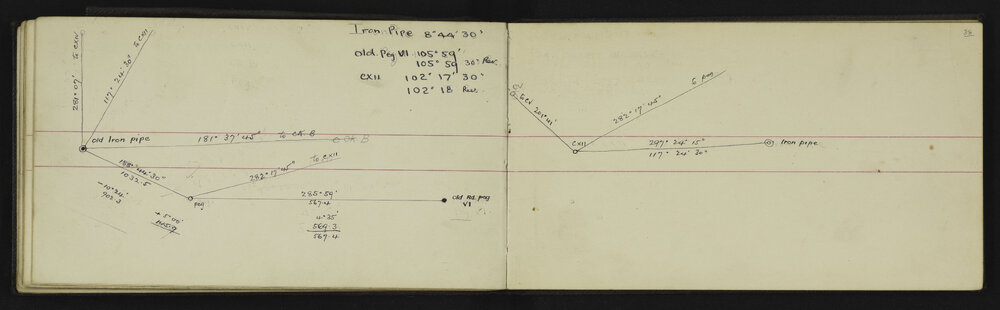 Iron Pipe 8°44'30"
Old Peg VI 105°59'
105°59 30" Rev.
CXII 102°17'30"
102°18 Rev.
281°07' to CXIV
117°24'30" to CXII
Old Iron pipe
181°37'45" to CA B
C OK B
188°44'30"
1032.5
282°17'45" To CXII
-10°24'
902.3
peg
+5°00'
285°59'
567.4
old Rd. peg
VI
4°35'
569.3
567.4
38
201°41'
282°17'45"
to peg
CXII
297°24'15"
117°24'30"
Iron pipe